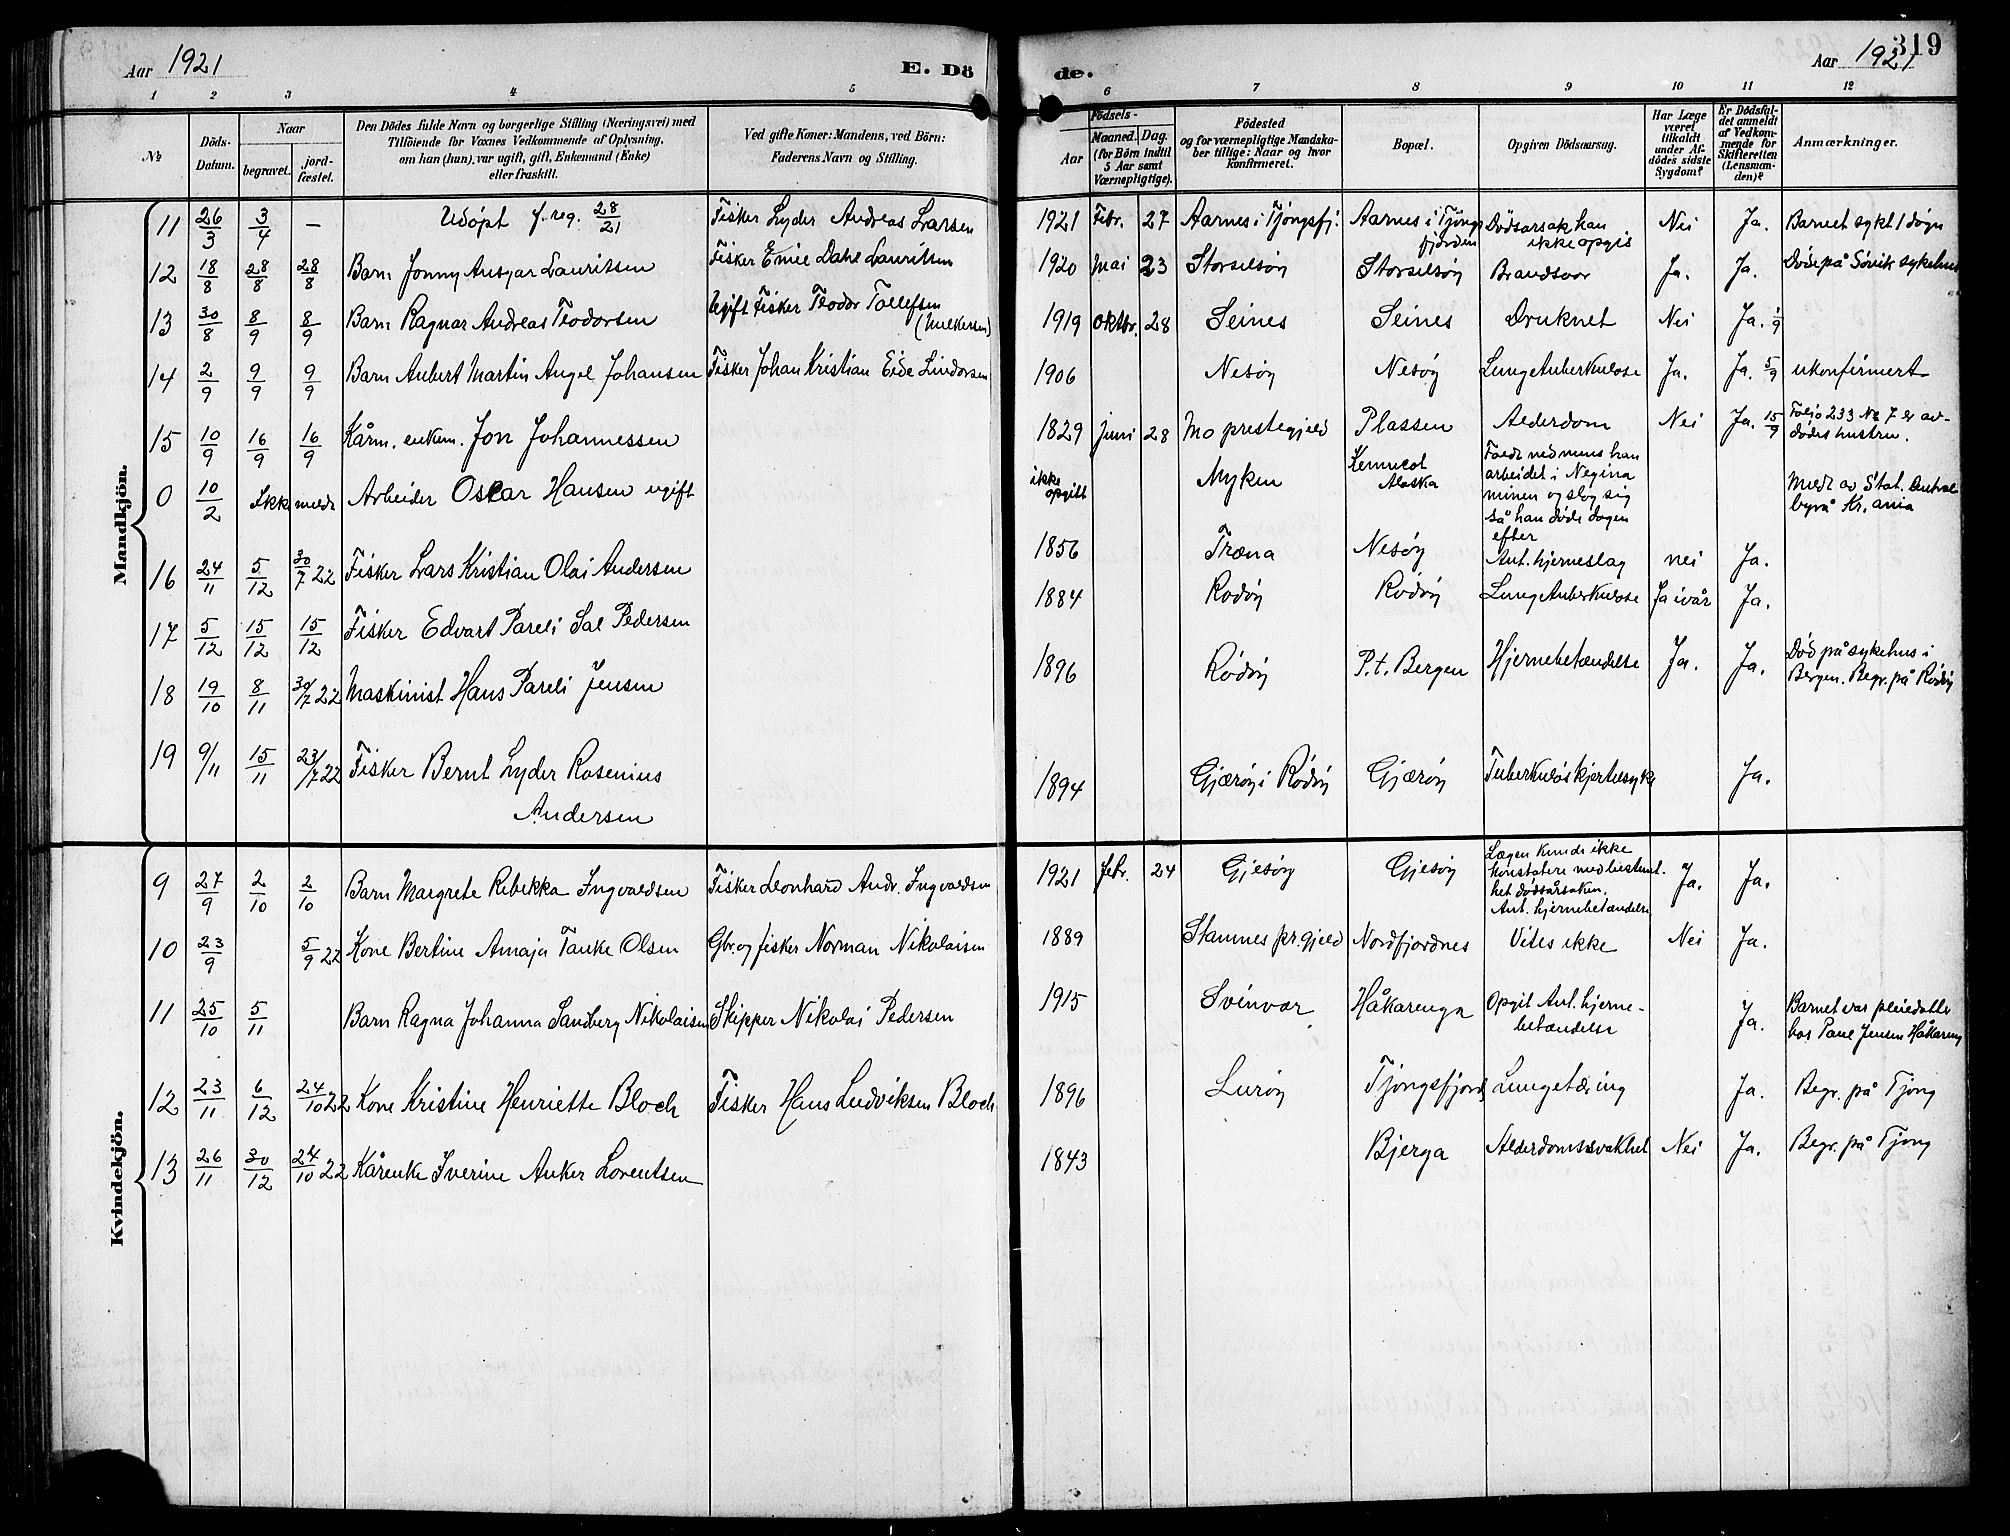 Aar 1921
E. Dö
de.
Aar 1921
319
1 2 3 4 5 6 7 8 9 10 11 12
№
Döds-Datum.
Naar
begravet.
jord-fæstet.
Den Dödes fulde Navn og borgerlige Stilling (Næringsvei) med
Tilföiende for Voxnes Vedkommende af Oplysning,
om han (hun), var ugift, gift, Enkemand (Enke)
eller fraskilt.
Ved gifte Koner: Mandens, ved Börn:
Faderens Navn og Stilling.
Födsels-
Aar
Maaned. Dag.
(for Börn indtil
5 Aar samt
Værnepligtige).
Födested
og for værnepligtige Mandska-
ber tillige: Naar og hvor
konfirmeret.
Bopæl.
Opgiven Dödsaarsag.
Har Læge
været
tilkaldt
under Af-
dödes sidste
Sygdom?
Er Dödsfal-
det anmeldt
af Vedkom-
mende for
Skifteretten
(Lensman-
den)?
Anmærkninger.
Mandkjön.
11 26/3 3/4 — Udöpt f. reg. 28/21 Fisker Lyder Andreas Larsen 1921 Febr. 27 Aarnes i Tjongsfj. Aarnes i Tjongsfjorden Dödsarsak kan ikke opgis Nei Ja. Barnet sykt 1 døgn
12 18/8 28/8 28/8 Barn Jonny Ansgar Lauritsen Fisker Emil Dahl Lauritsen 1920 Mai 23 Storselsöy Storselsöy Brandsaar Ja. Ja. Döde på Sövik sykehus
13 30/8 8/9 8/9 Barn Ragnar Andreas Teodorsen Ugift Fisker Teodor Tollefsen 1919 Oktbr. 28 Seines Seines Druknet Nei Ja. 1/9
14 2/9 9/9 9/9 Barn Aubert Martin Angel Johansen Fisker Johan Kristian Eide Lindorsen 1906 Nesöy Nesöy Lungetuberkulose Ja. Ja. 5/9 ukonfirmert
15 10/9 16/9 16/9 Kårm. enkem. Jon Johannessen 1829 juni 28 Mo prestegjeld Plassen Alderdom Nei Ja. 15/9 Foljo 233 No 7 er avdödes hustru.
0 10/2 Ikke meldt Arbeider Oskar Hansen ugift ikke opgitt Myken Kennecot Alaska Faldt ned mens han arbeidet i Negina minen og slog sig så han döde dagen efter Meldt av Stat. Central byrå Kr.ania
16 24/11 5/12 30/7 22 Fisker Lars Kristian Olai Andersen 1856 Træna Nesöy Ant. hjerneslag nei Ja.
17 5/12 15/12 15/12 Fisker Edvart Pareli Sal Pedersen 1884 Rödöy Rödöy Lungetuberkulose Ja ivår Ja.
18 19/10 8/11 30/7 22 Maskinist Hans Pareli Jensen 1896 Rödöy P.t. Bergen Hjernebetændelse Ja. Ja. Död på sykehus i Bergen. Begr. på Rödöy
19 9/11 15/11 23/7 22 Fisker Bernt Lyder Rosenius Andersen 1894 Gjæröy i Rödöy Gjæröy Tuberkulös kjertelsyke Ja.
Kvindekjön.
9 27/9 2/10 2/10 Barn Margrete Rebekka Ingvaldsen Fisker Leonhard Andr. Ingvaldsen 1921 febr. 24 Gjesöy Gjesöy Lægen kunde ikke konstatere med bestemthet dödsårsaken. Ant. hjernebetændelse Ja. Ja.
10 23/9 5/9 22 Kone Bertine Amaja Tanke Olsen Gbr. og fisker Norman Nikolaisen 1889 Stamnes pr.gjeld Nordfjordnes Vites ikke Nei Ja.
11 25/10 5/11 Barn Ragna Johanna Sandberg Nikolaisen Skipper Nikolai Pedersen 1915 Svinvær Håkarenga Opgit Ant. hjernebetændelse Ja. Barnet var pleiedatter hos Paul Jensen Håkareng
12 23/11 6/12 24/10 22 Kone Kristine Henriette Bloch Fisker Hans Ludviksen Bloch 1896 Luröy Tjongsfjord Lungetæring Ja. Begr. på Tjong
13 26/11 30/12 24/10 22 Kårenke Iverine Anker Lorentsen 1843 Bjerga Alderdomssvakhet Nei Ja. Begr. på Tjong